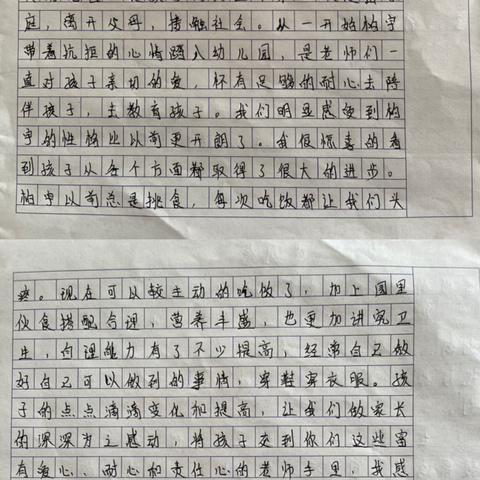 庭，离开父母，接触社会。从一开始柏宇
带着抗拒的心情踏入幼儿园，是老师们一
直对孩子亲切的爱，怀有足够的耐心去陪
伴孩子，去教育孩子。我们明显感受到柏
宇的性格比以前更开朗了。我很惊喜的看
到孩子从各个方面都取得了很大的进步。
柏宇以前总是挑食，每次吃饭都让我们头
疼。现在可以较主动的吃饭了，加上园里
伙食搭配合理，营养丰盛，也更加讲究卫
生，自理能力有了不少提高，经常自己做
好自己可以做到的事情，穿鞋穿衣服。孩
子的点点滴滴变化和提高，让我们做家长
的深深为之感动，将孩子交到你们这些富
有爱心、耐心和责任心的老师手里，我感